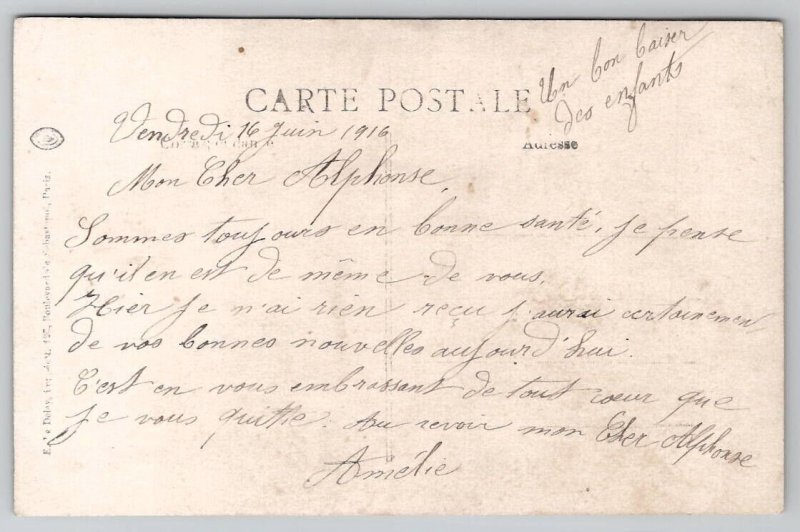 Un bon baiser
des enfants
CARTE POSTALE
Vendredi 16 Juin 1916
Correspondance
Adresse
Mon Cher Alphonse,
Sommes toujours en bonne santé, je pense
qu'il en est de même de vous.
Hier je n'ai rien reçu j'aurai certainemen
de vos bonnes nouvelles aujourd'hui.
C'est en vous embrassant de tout cœur que
je vous quitte. Au revoir mon Cher Alphonse
Amélie
E. Le Deley, 127, Boulevard de Sébastopol, Paris.